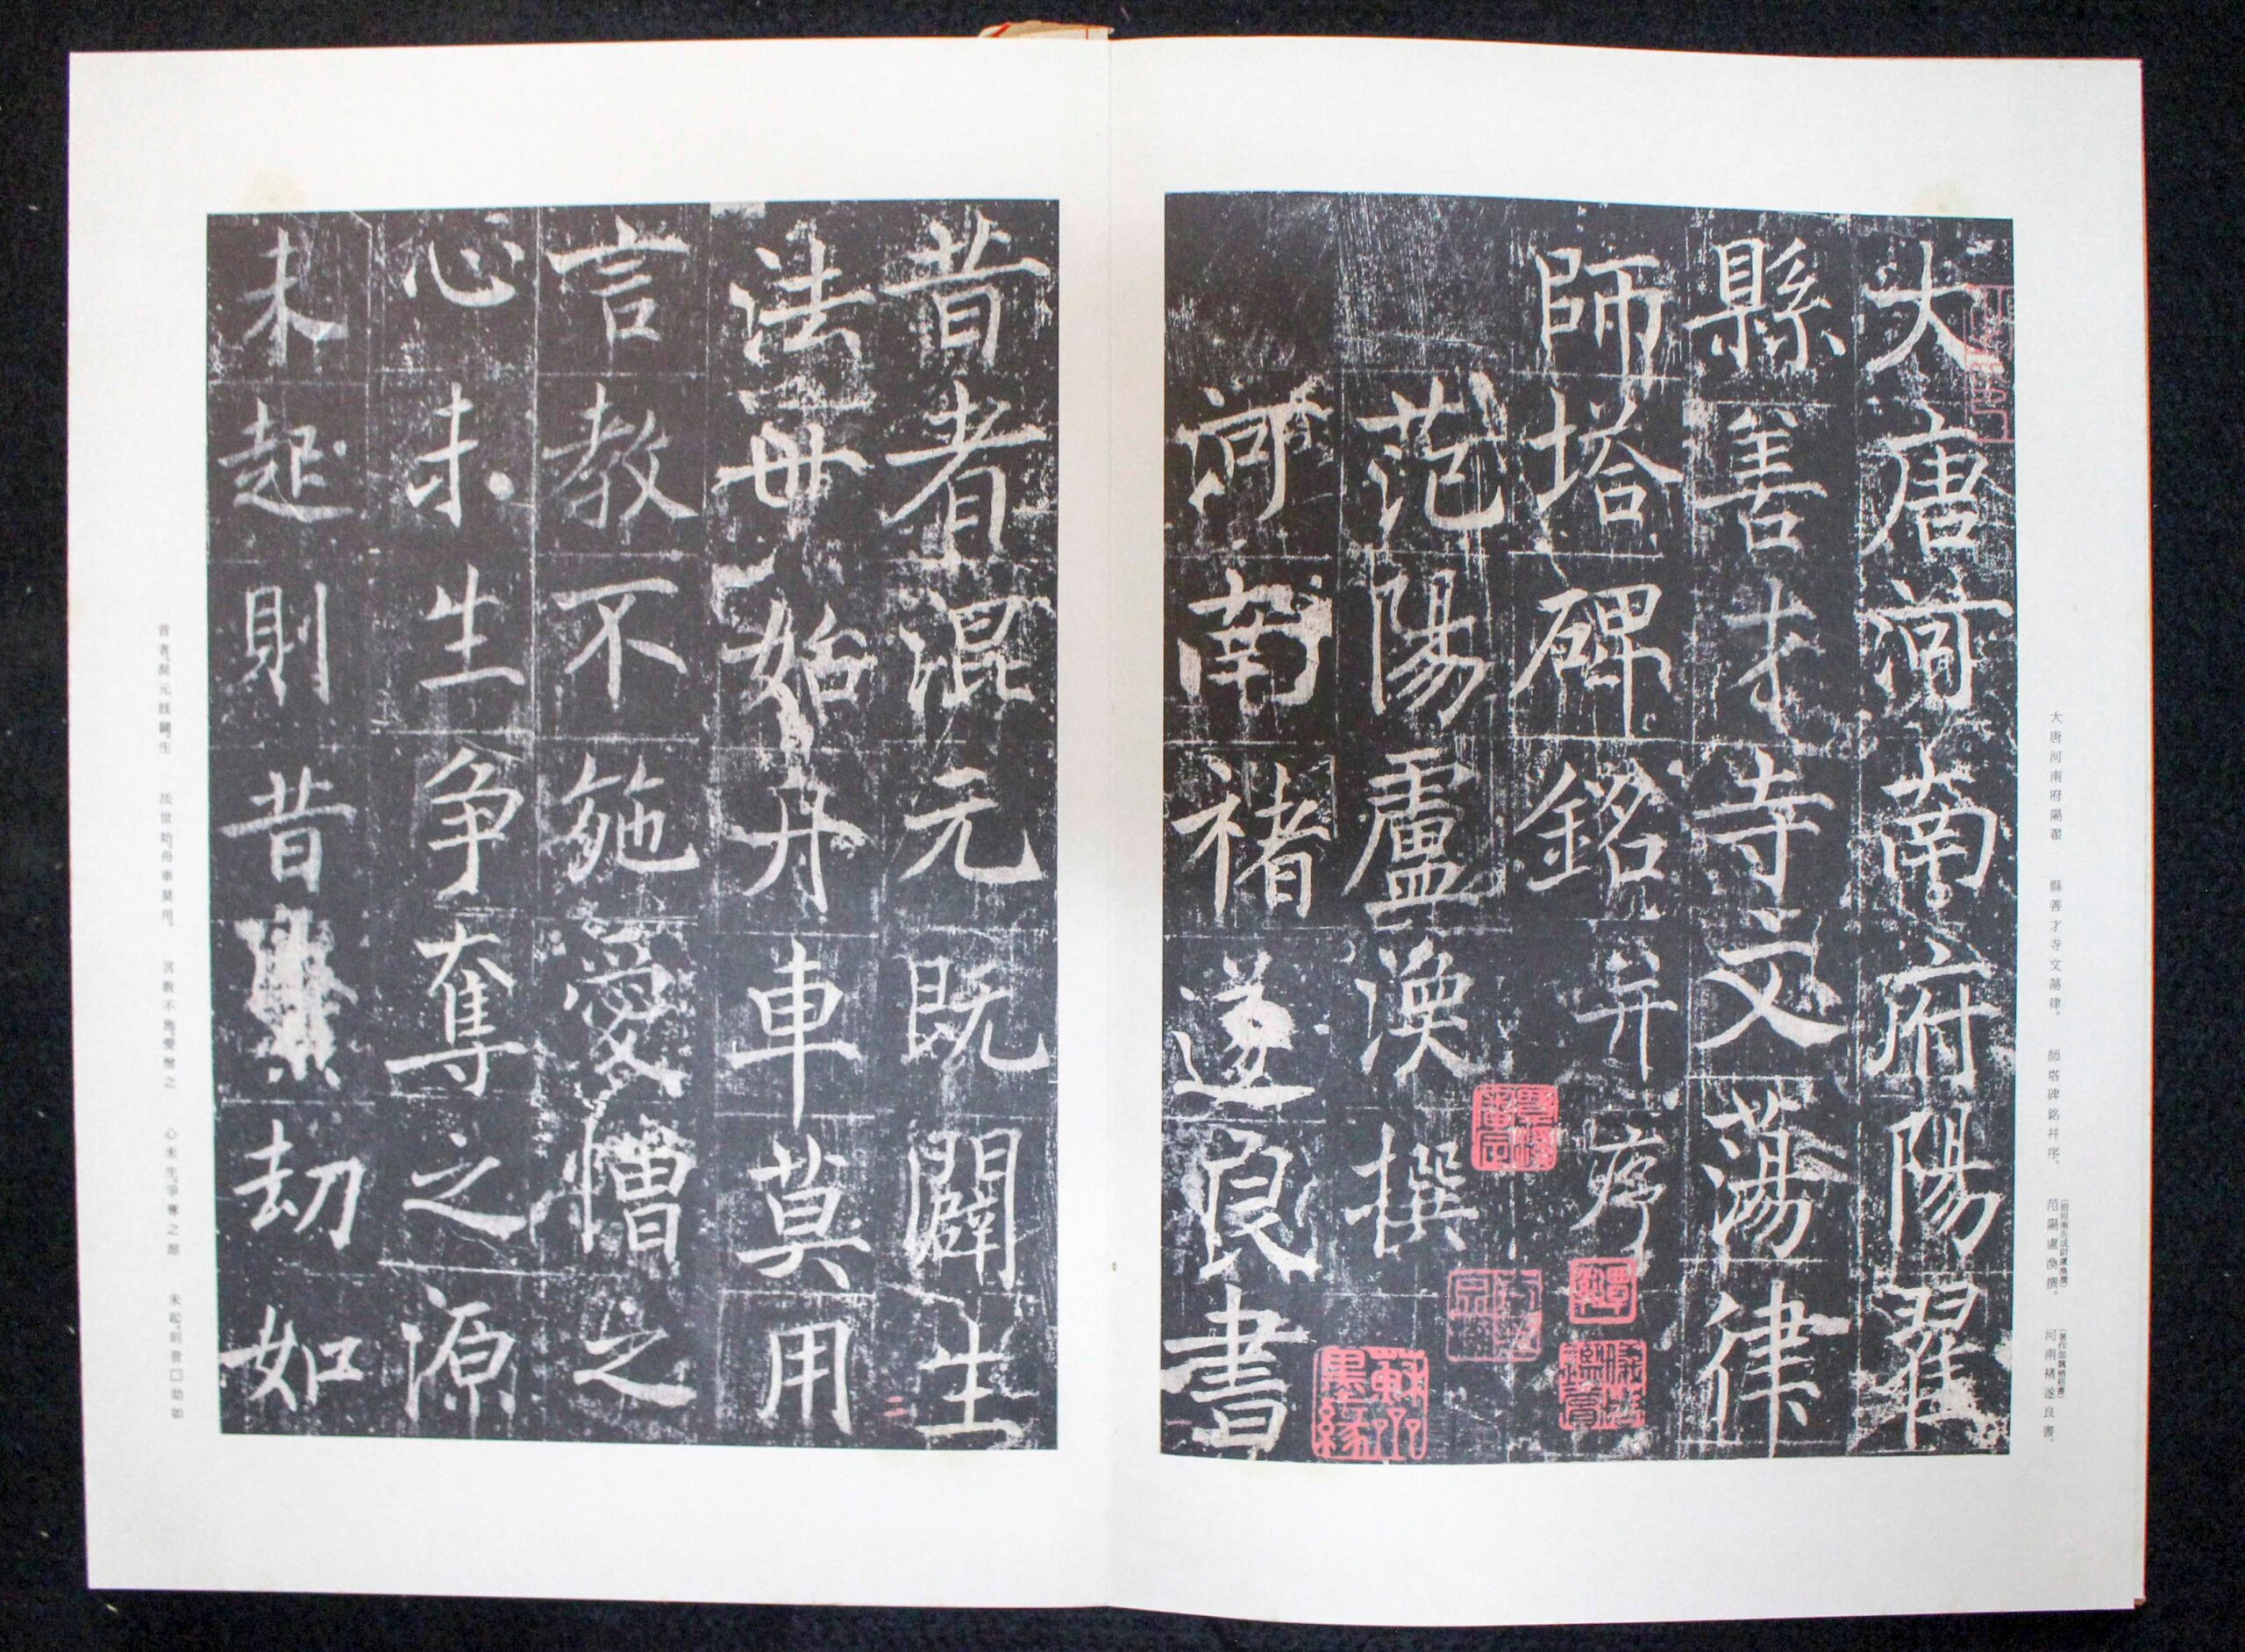 大唐河南府陽翟
縣善才寺文蕩律
師塔碑銘并序
范陽盧渙撰
河南褚遂良書
蘇齋墨緣
一
大唐河南府陽翟 縣善才寺文蕩律。 師塔碑銘并序。 范陽盧渙撰。 河南褚遂良書。
昔者混元既闢生
法世始舟車莫用
言教不施愛憎之
心未生争奪之源
未起則昔劫如
二
昔者混元既闢生 法世始舟車莫用。 言教不施愛憎之 心未生爭奪之源 未起則昔□劫如